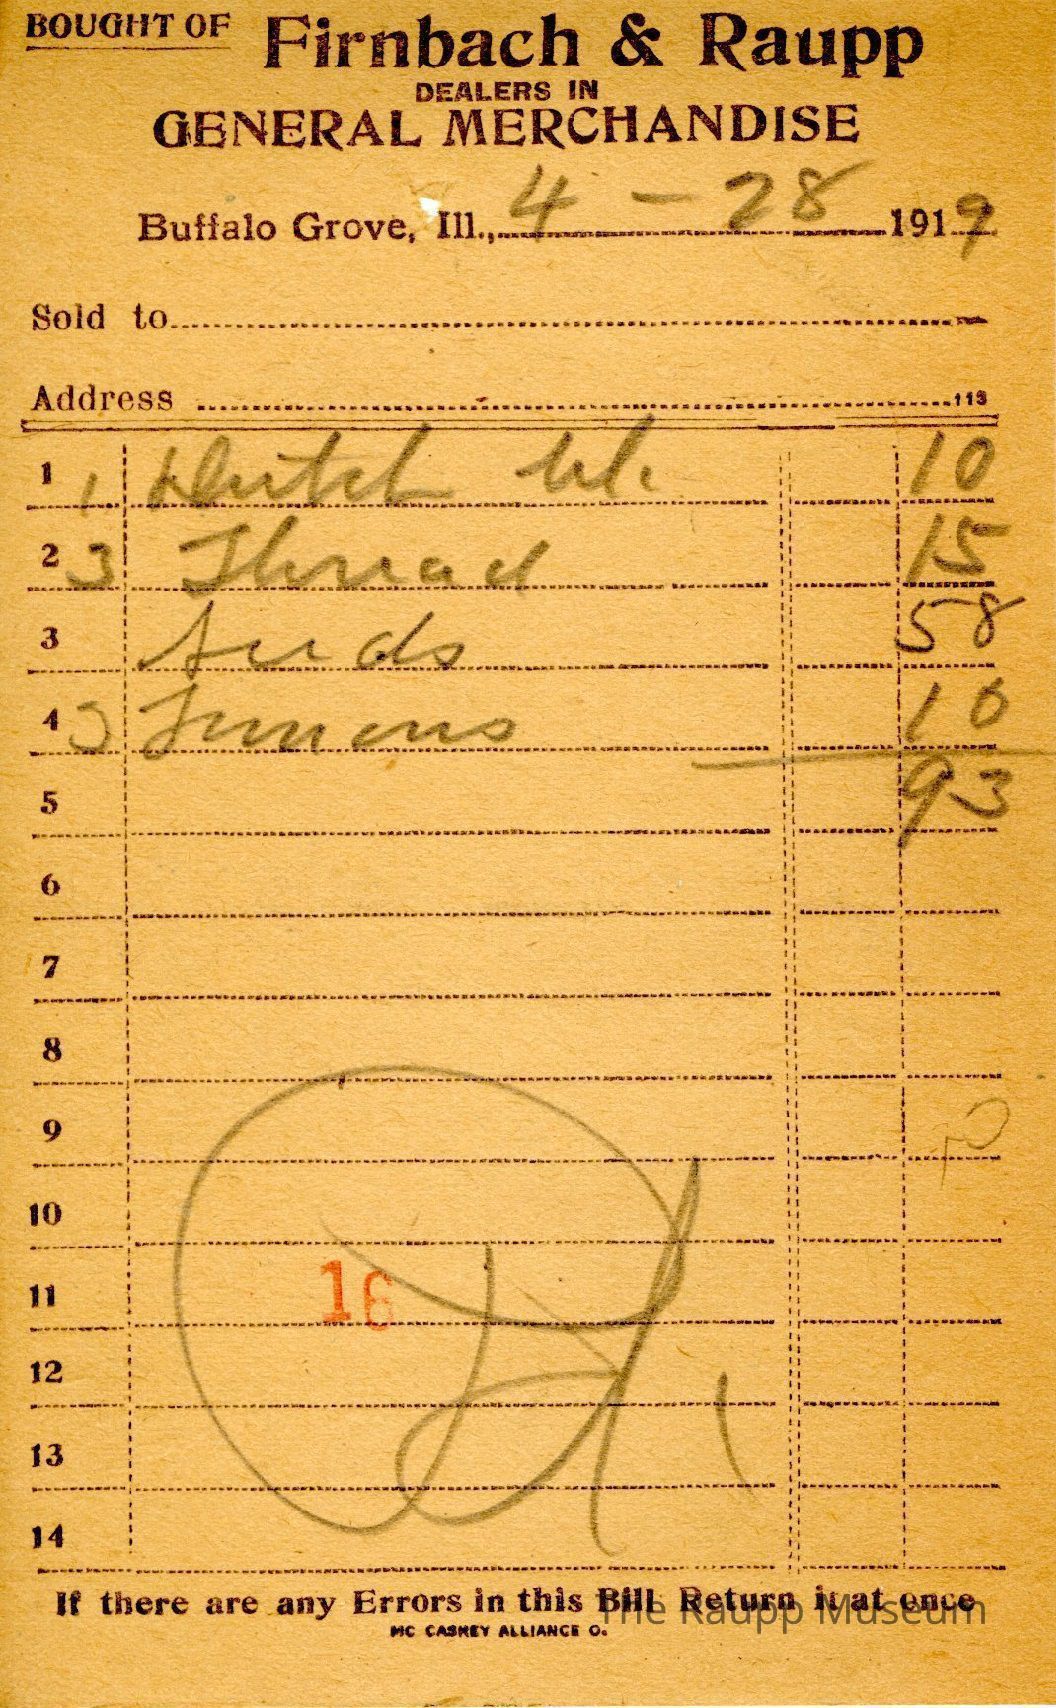 BOUGHT OF Firnbach & Raupp
DEALERS IN
GENERAL MERCHANDISE
Buffalo Grove, Ill., 4 - 28 1919
Sold to
Address 113
1 1 Dutch bl. 10
2 3 Thread 15
3 Seeds 58
4 3 Lemons 10
5 93
6
7
8
9 70
10
11 16
12
13
14
If there are any Errors in this Bill Return it at once
The Raupp Museum
MC CASKEY ALLIANCE O.